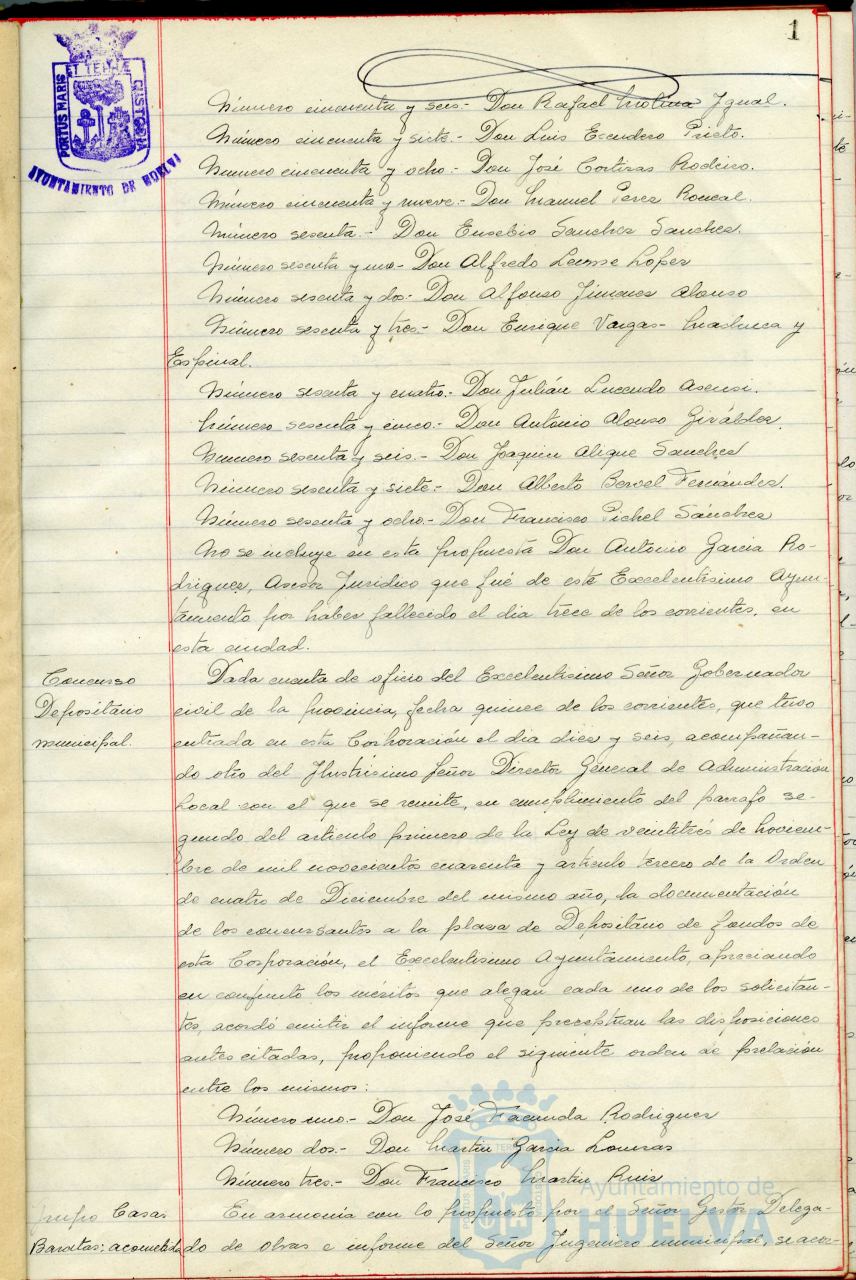 1
PORTUS MARIS
ET TERRÆ
CUSTODIA
AYUNTAMIENTO DE HUELVA
Número cincuenta y seis.- Don Rafael Molina Igual.
Número cincuenta y siete.- Don Luis Escudero Prieto.
Numero cincuenta y ocho.- Don José Cortizas Rodeiro.
Número cincuenta y nueve.- Don Manuel Perez Roncal.
Número sesenta.- Don Eusebio Sanchez Sanchez.
Número sesenta y uno- Don Alfredo López
Número sesenta y dos- Don Alfonso Jimenez Alonso
Número sesenta y tres.- Don Enrique Vargas- Machuca y
Espinal.
Número sesenta y cuatro.- Don Julián Lucendo Asensi.
Número sesenta y cinco.- Don Antonio Alonso Giráldez.
Numero sesenta y seis.- Don Joaquin Alique Sanchez
Número sesenta y siete.- Don Alberto Fernández.
Número sesenta y ocho.- Don Francisco Pichel Sánchez
No se incluye en esta propuesta Don António Garcia Ro-
driguez, Asesor Juridico que fué de este Excelentisimo Ayun-
tamiento por haber fallecido el dia trece de los corrientes, en
esta ciudad.
Concurso
Depositario
municipal.
Dada cuenta de oficio del Excelentisimo Señor Gobernador
civil de la provincia, fecha quince de los corrientes, que tuvo
entrada en esta Corporación el dia diez y seis, acompañan-
do otro del Ilustrísimo Señor Director General de Administración
Local con el que se remite, en cumplimiento del parrafo se-
gundo del articulo primero de la Ley de veintitrés de Noviem-
bre de mil novecientos cuarenta y articulo tercero de la Orden
de cuatro de Diciembre del mismo año, la documentación
de los concursantes a la plaza de Depositario de fondos de
esta Corporación, el Excelentisimo Ayuntamiento, apreciando
en conjunto los méritos que alegan cada uno de los solicitan-
tes, acordó emitir el informe que preceptuan las disposiciones
antes citadas, proponiendo el siguiente orden de prelación
entre los mismos:
Número uno.- Don José Facunda Rodriguez
Número dos.- Don Martin Garcia
Número tres.- Don Francisco Martin Ruiz
Grupo Casas
Baratas: acometida
En armonía con lo propuesto por el Señor Gestor Delega-
do de obras e informe del Señor Ingeniero municipal, se acor-
Ayuntamiento de
HUELVA